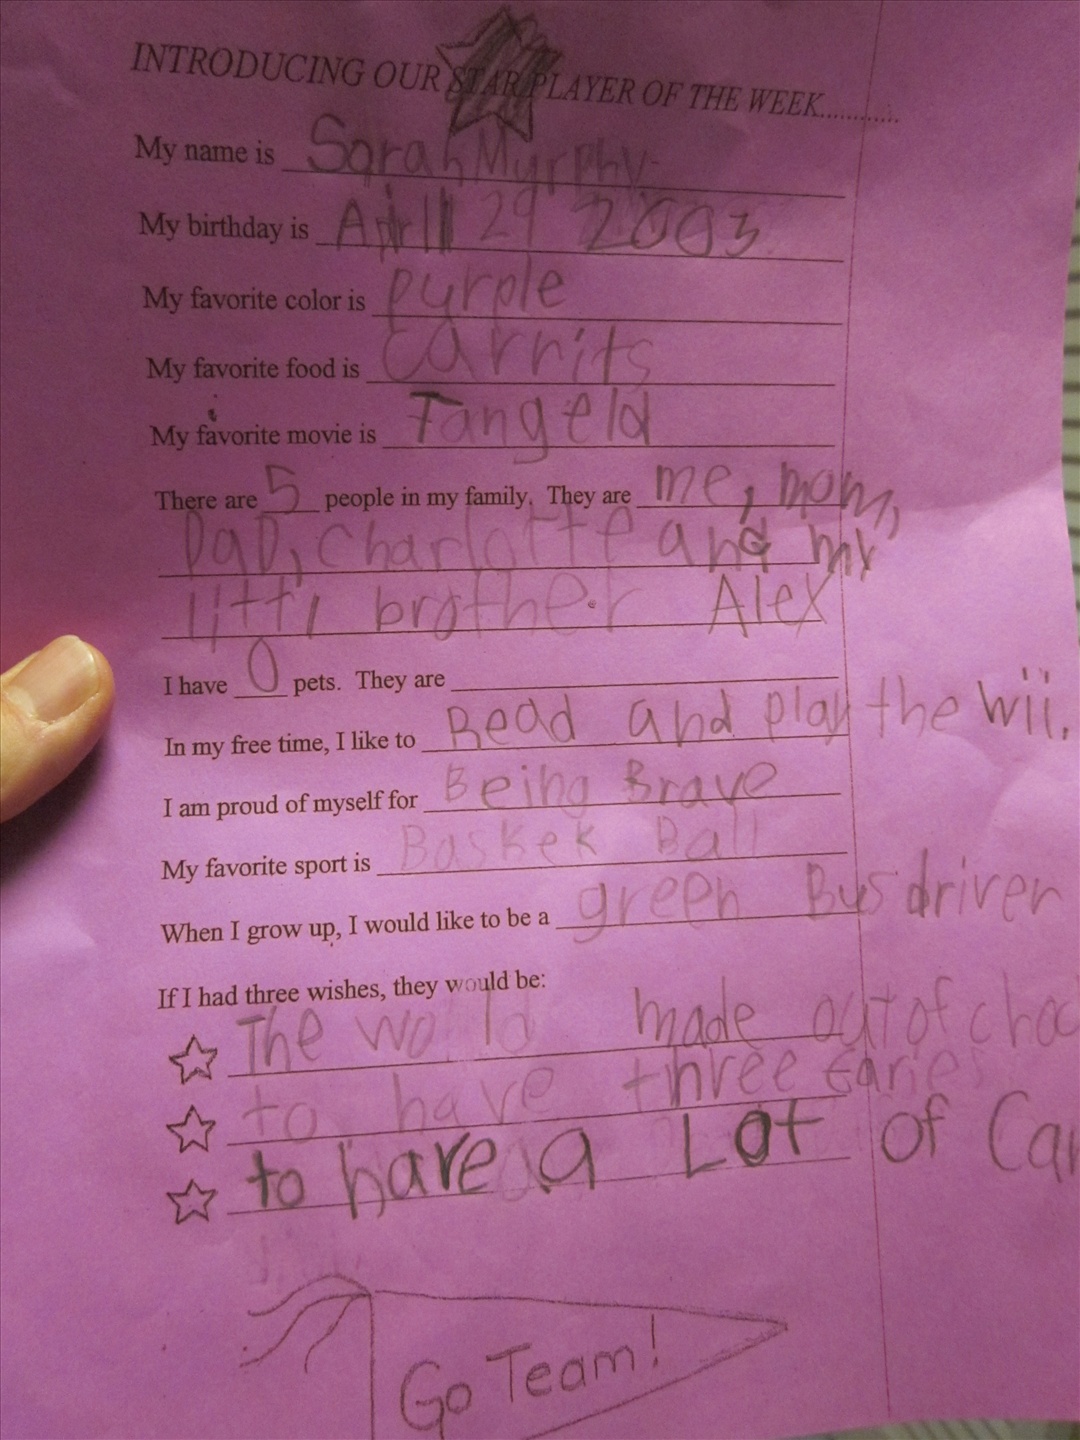 INTRODUCING OUR STAR PLAYER OF THE WEEK............
My name is Sarah Myrphy
My birthday is April 29 2003
My favorite color is pyrple
My favorite food is carrits
My favorite movie is Tangeld
There are 5 people in my family. They are me, mom,
DaD, Charlotte and my
littl brother Alex
I have 0 pets. They are
In my free time, I like to Read and play the wii.
I am proud of myself for Being Brave
My favorite sport is Baskek Ball
When I grow up, I would like to be a green Bus driver
If I had three wishes, they would be:
The world made out of choc
to have three
to have a Lot of Car
Go Team!